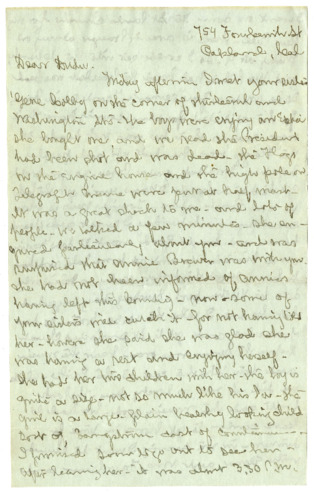 754 Fourteenth St
Oakland, Cal
Dear Susie.
Friday afternoon I met your sister
Gene Colby on the corner of thirteenth and
Washington Sts. the boys were crying an Extra
she bought one and we read the President
had been shot and was dead. the Flags
on the engine house and the high pole on
Telegraph Avenue were put at half mast
It was a great shock to me - and lots of
people. We talked a few minutes. She en-
quired particularly about you - and was
surprised that Annie Brown was with you.
she had not been informed of Annies
having left this country - now - some of
your sisters will catch it - for not having told
her - however she said she was glad she
was having a rest and enjoying herself -
She had her two children with her - the boy is
quite a size - not so much like his Pa - the
girl is a large plain healthy looking child
sort of cast of countenance -
I promised some to go out to see her -
after leaving her - it was about 3.30 P.M.